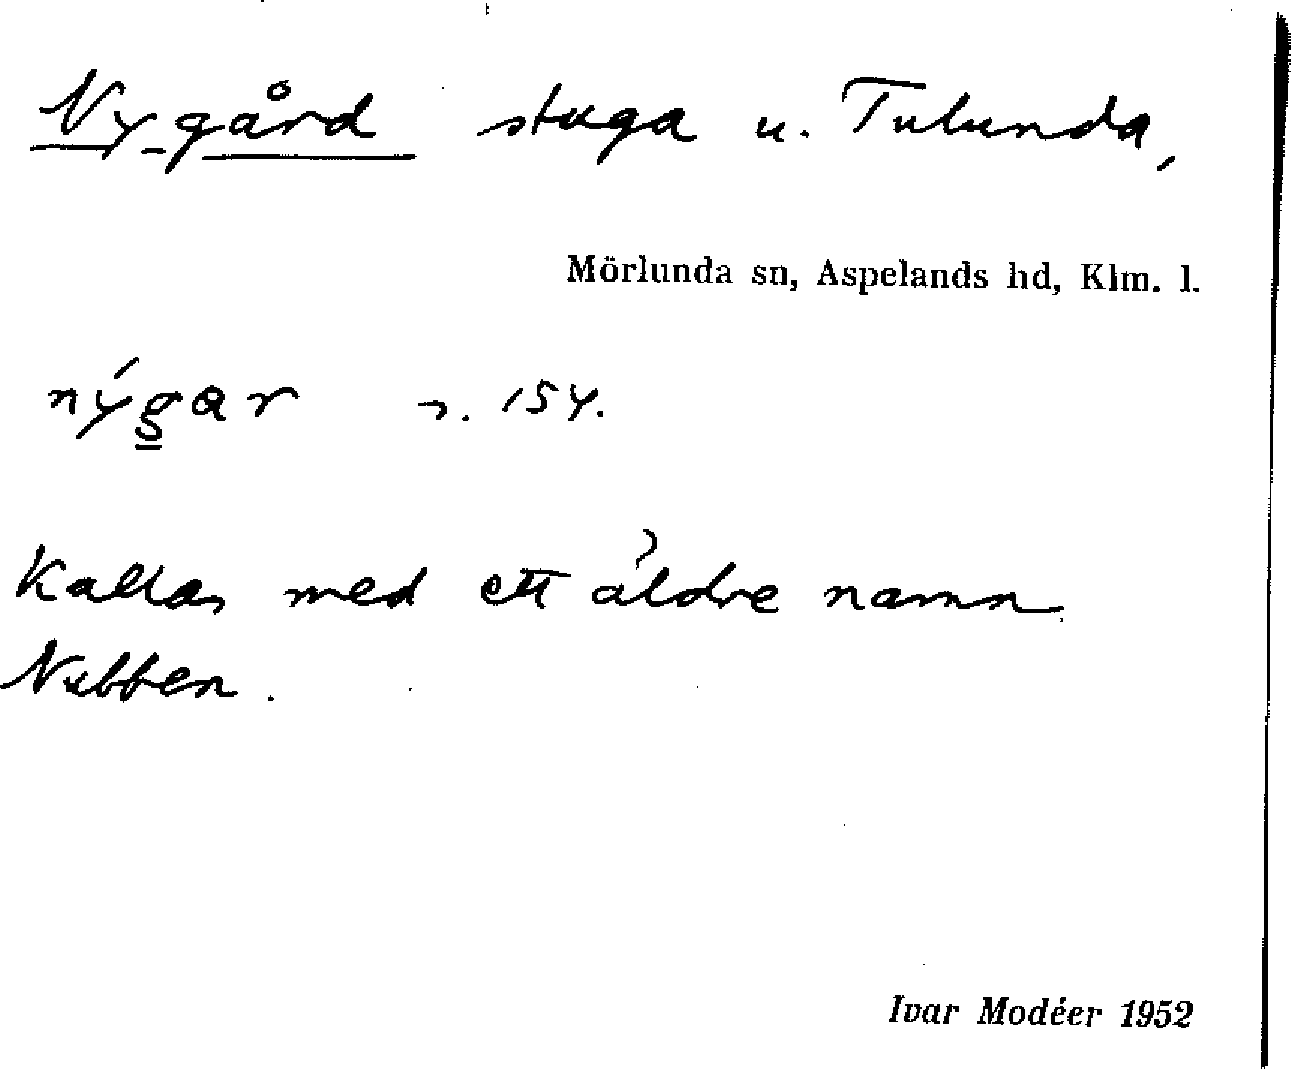 Nygård stuga u. Tulunda,
Mörlunda sn, Aspelands hd, Klm. l.
nýgar n. 154.
Kallas med ett äldre namn
Nubben.
Ivar Modéer 1952